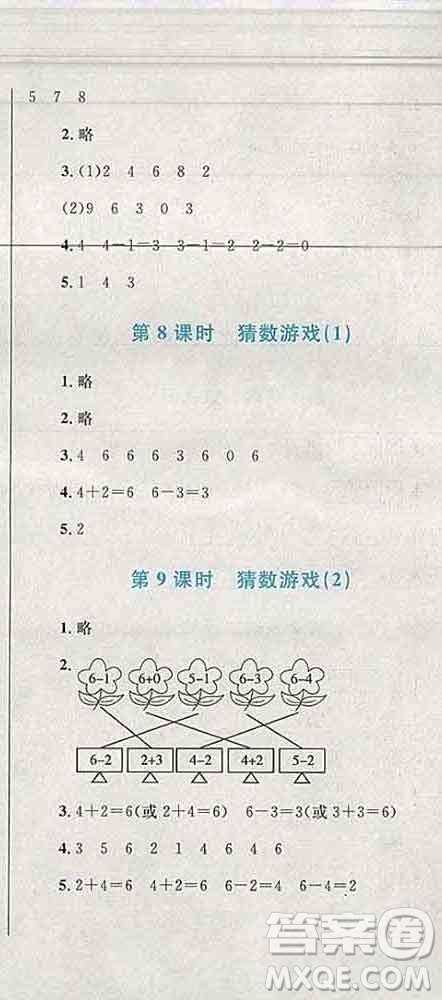 5 7 8
2. 略
3. (1)2 4 6 8 2
(2)9 6 3 0 3
4. 4 4－1＝3 3－1＝2 2－2＝0
5. 1 4 3
第 8 课时 猜数游戏(1)
1. 略
2. 略
3. 4 6 6 6 3 6 0 6
4. 4＋2＝6 6－3＝3
5. 2
第 9 课时 猜数游戏(2)
1. 略
2.
6−1 6+0 5−1 6−3 6−4
6−2 2+3 4−2 4+2 5−2
3. 4＋2＝6(或 2＋4＝6) 6－3＝3(或 3＋3＝6)
4. 3 5 6 2 1 4 6 4 6
5. 2＋4＝6 4＋2＝6 6－2＝4 6－4＝2
答案圈
MXQE.COM